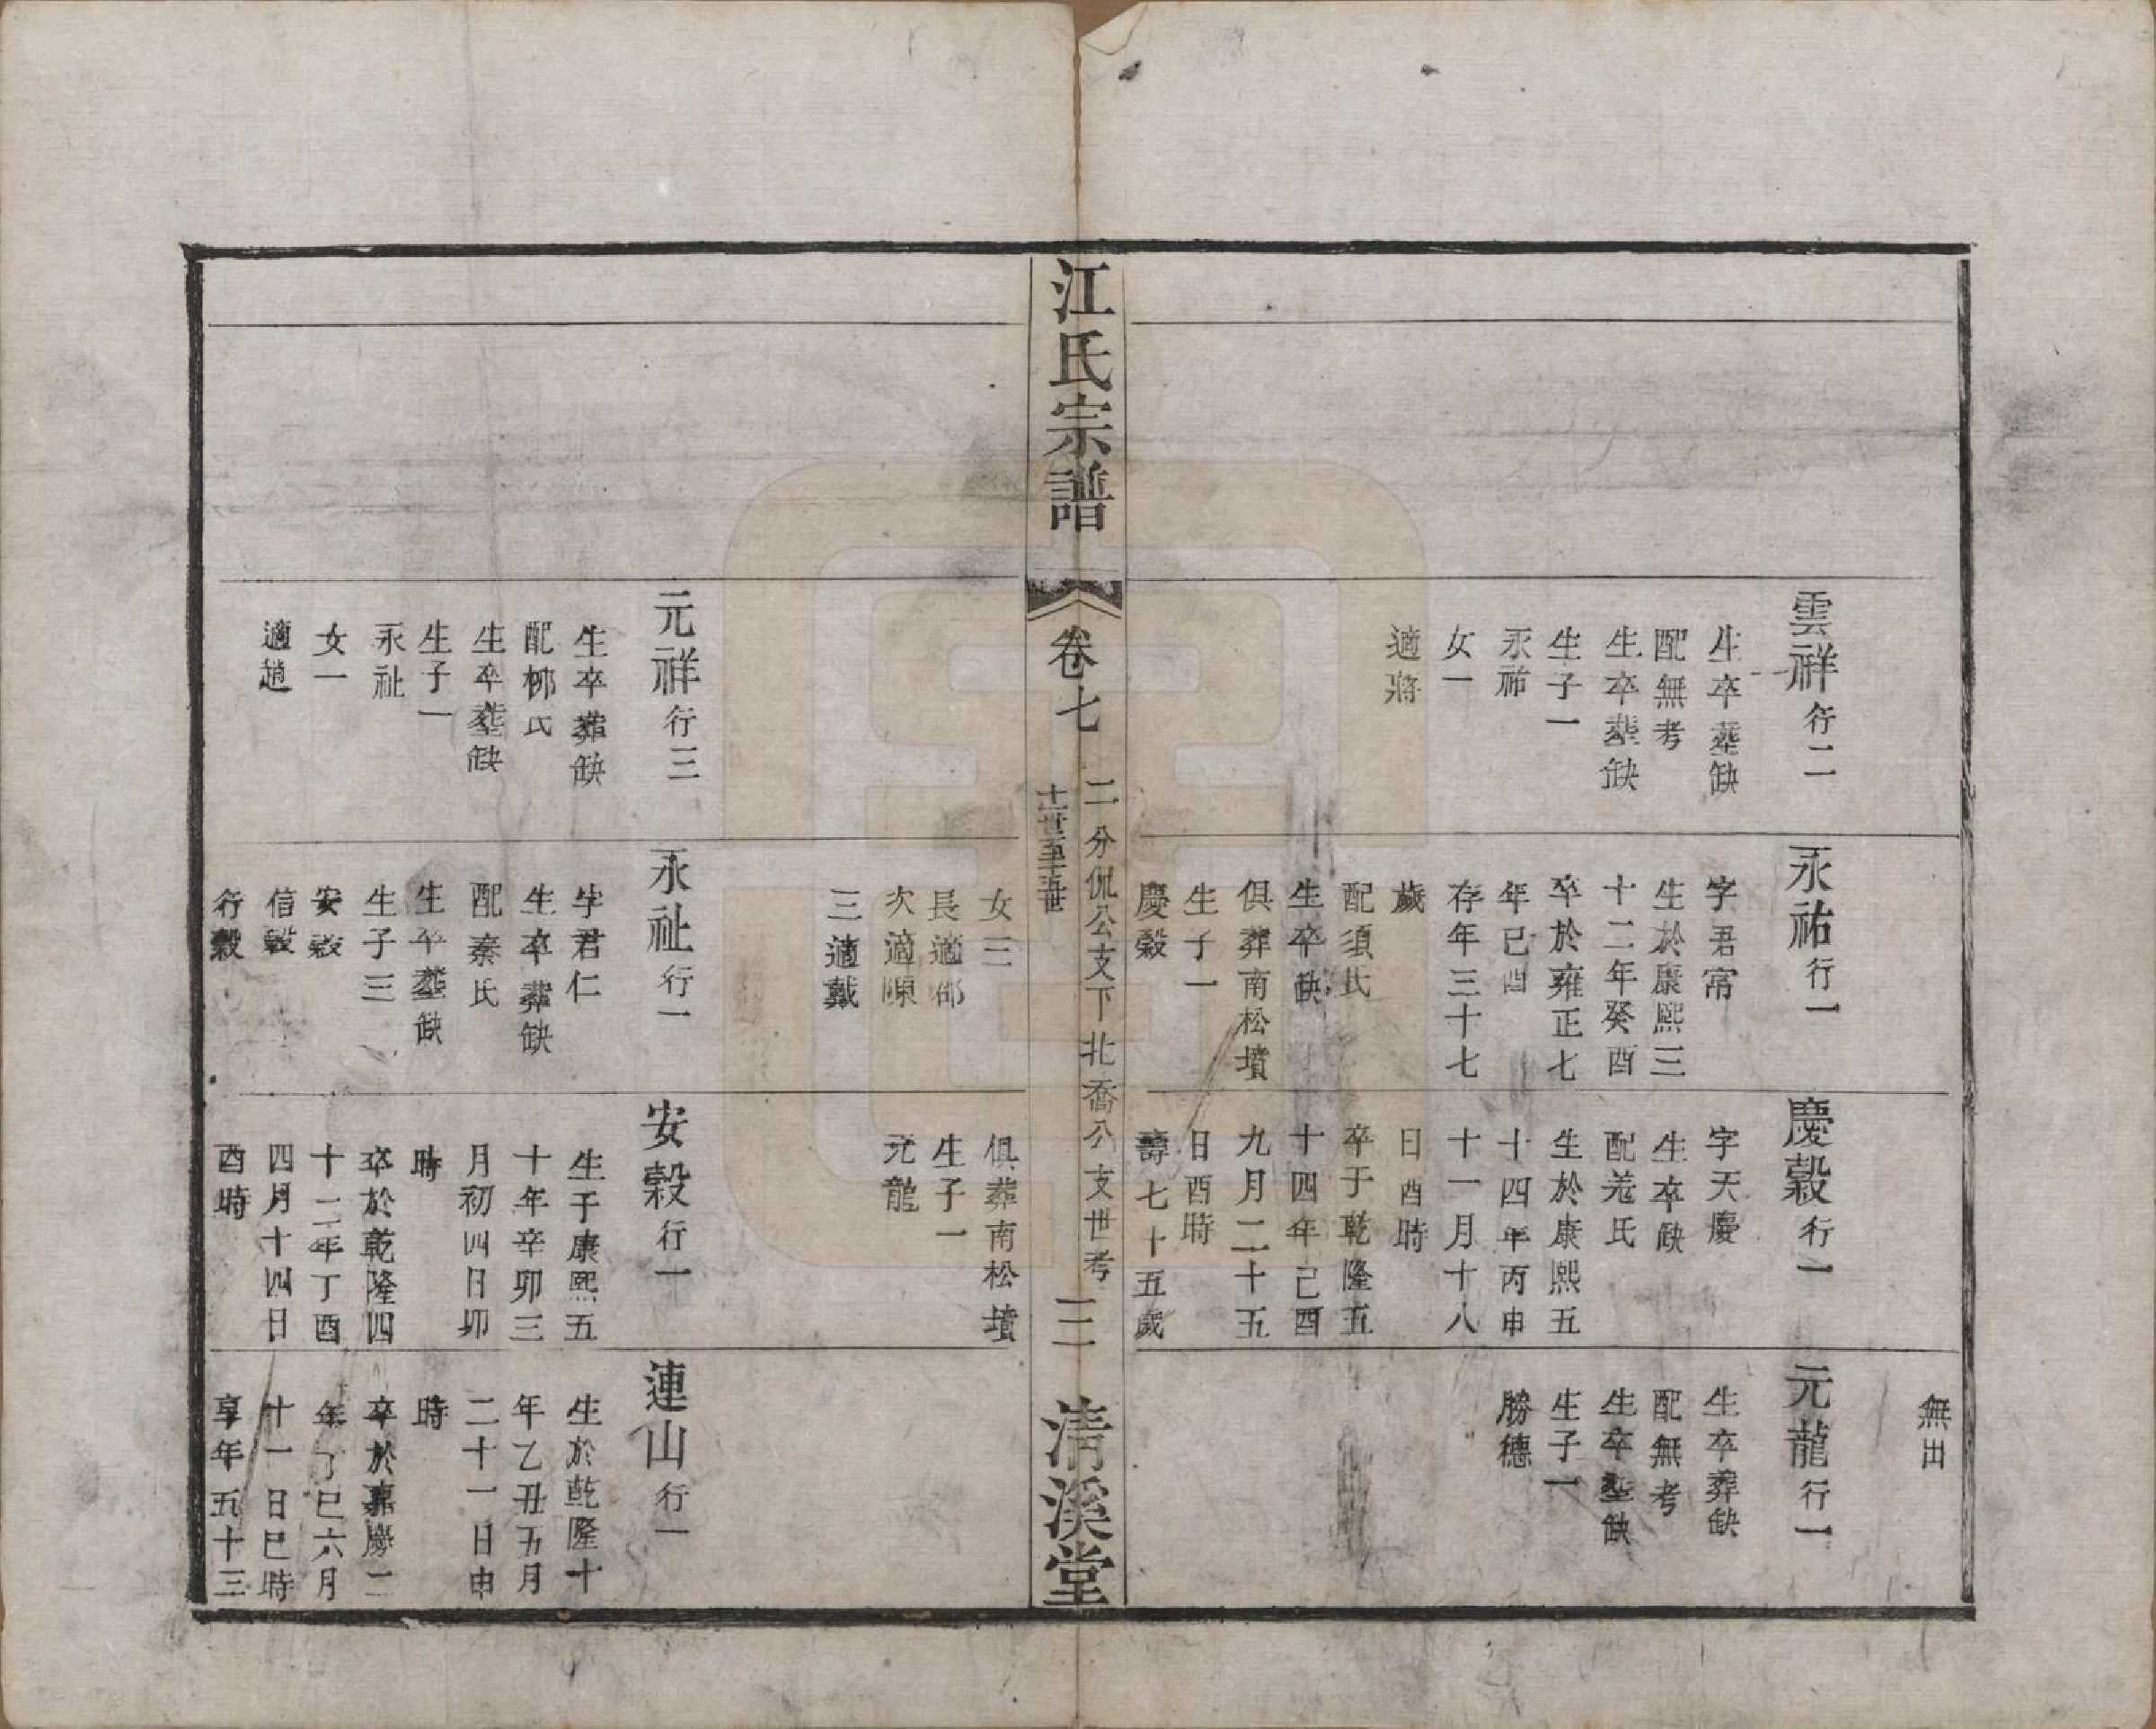 無出
雲祥行二
生卒塟缺
配無考
生卒塟缺
生子一
永祐
女一
適蔣
永祐行一
字君常
生於康熙三
十二年癸酉
卒於雍正七
年己酉
存年三十七
歲
配須氏
生卒缺
俱葬南松墳
生子一
慶穀
慶穀行一
字天慶
生卒缺
配羌氏
生於康熙五
十四年丙申
十一月十八
日酉時
卒于乾隆五
十四年己酉
九月二十五
日酉時
壽七十五歲
元龍行一
生卒葬缺
配無考
生卒塟缺
生子一
勝德
江氏宗譜
卷七
二分侃公支下北喬公支世考
十一世至十五世
三
清溪堂
女三
長適邵
次適陳
三適戴
俱葬南松墳
生子一
元龍
元祥行三
生卒葬缺
配柳氏
生卒塟缺
生子一
永祉
女一
適趙
永祉行一
字君仁
生卒葬缺
配秦氏
生卒塟缺
生子三
安穀
信穀
行穀
安穀行一
生于康熙五
十年辛卯三
月初四日卯
時
卒於乾隆四
十二年丁酉
四月十四日
酉時
連山行一
生於乾隆十
年乙丑五月
二十一日申
時
卒於嘉慶二
年丁巳六月
十一日巳時
享年五十三